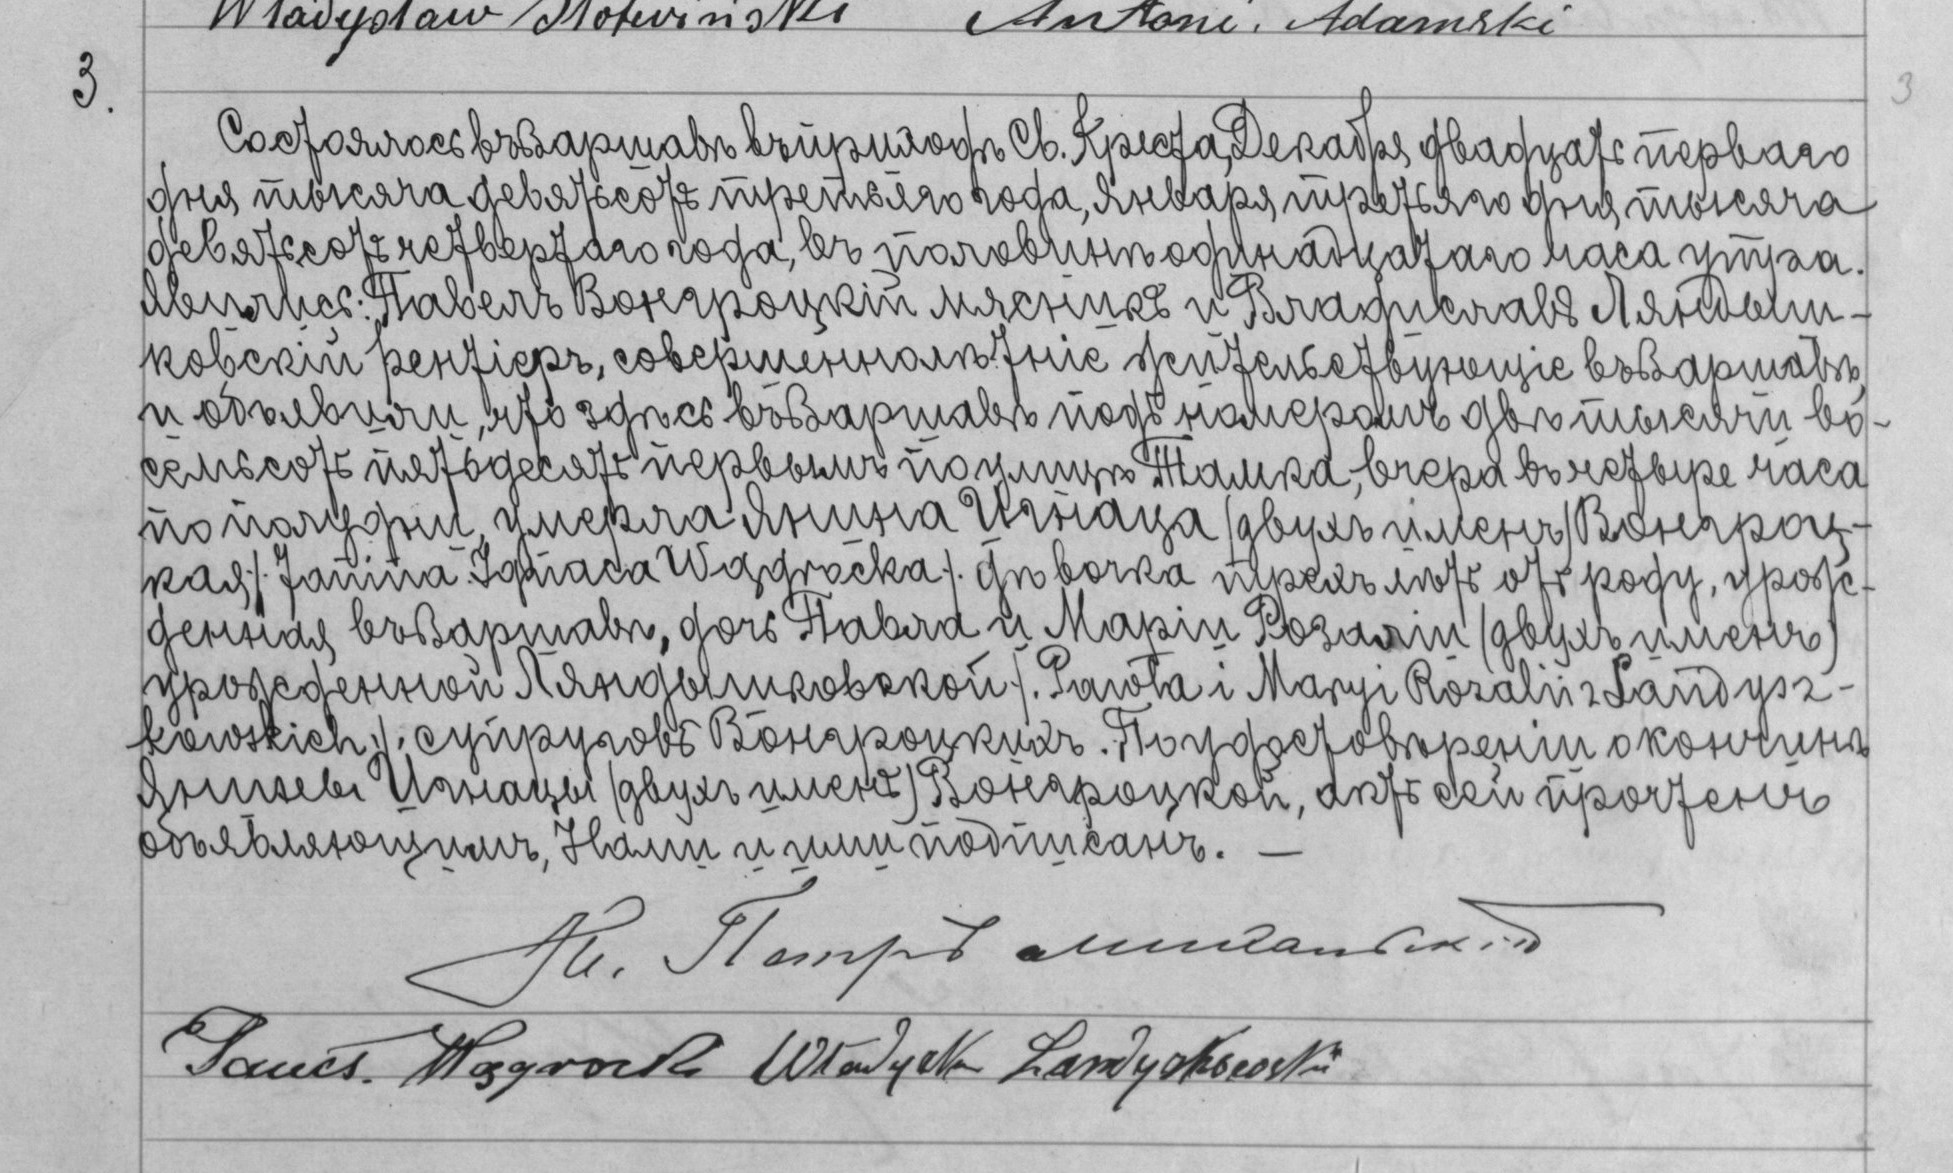 Władysław Słotwiński Antoni Adamski
3.
3
Состоялось въ Варшавѣ въ приходѣ Св. Креста, Декабря двадцать перваго
дня тысяча девятьсотъ третьяго года, Января третьяго дня, тысяча
девятьсотъ четвертаго года, въ половинѣ одинадцатаго часа утра.
Явились: Павелъ Вонгроцкій мясникъ и Владиславъ Ляндыш-
ковскій рентіеръ, совершеннолѣтніе жительствующіе въ Варшавѣ,
и объявили, что здѣсь въ Варшавѣ подъ номеромъ двѣ тысячи во-
семьсотъ пятьдесятъ первымъ по улицѣ Тамка, вчера въ четыре часа
по полудни, умерла Янина Игнаца (двухъ именъ) Вонгроц-
кая /. Janina Ignaca Wągrocka ./ дѣвочка трехъ лѣтъ отъ роду, урож-
денная въ Варшавѣ, дочь Павла и Маріи Розаліи (двухъ именъ)
урожденной Ляндышковской /. Pawła i Maryi Rozalii z Landysz-
kowskich ./. супруговъ Вонгроцкихъ. По удостовѣреніи о кончинѣ
Янины Игнацы (двухъ именъ) Вонгроцкой, актъ сей прочтенъ
объявляющимъ, Нами и ими подписанъ. —
Кс. Петръ
Wągrocki Władysław Landyszkowski